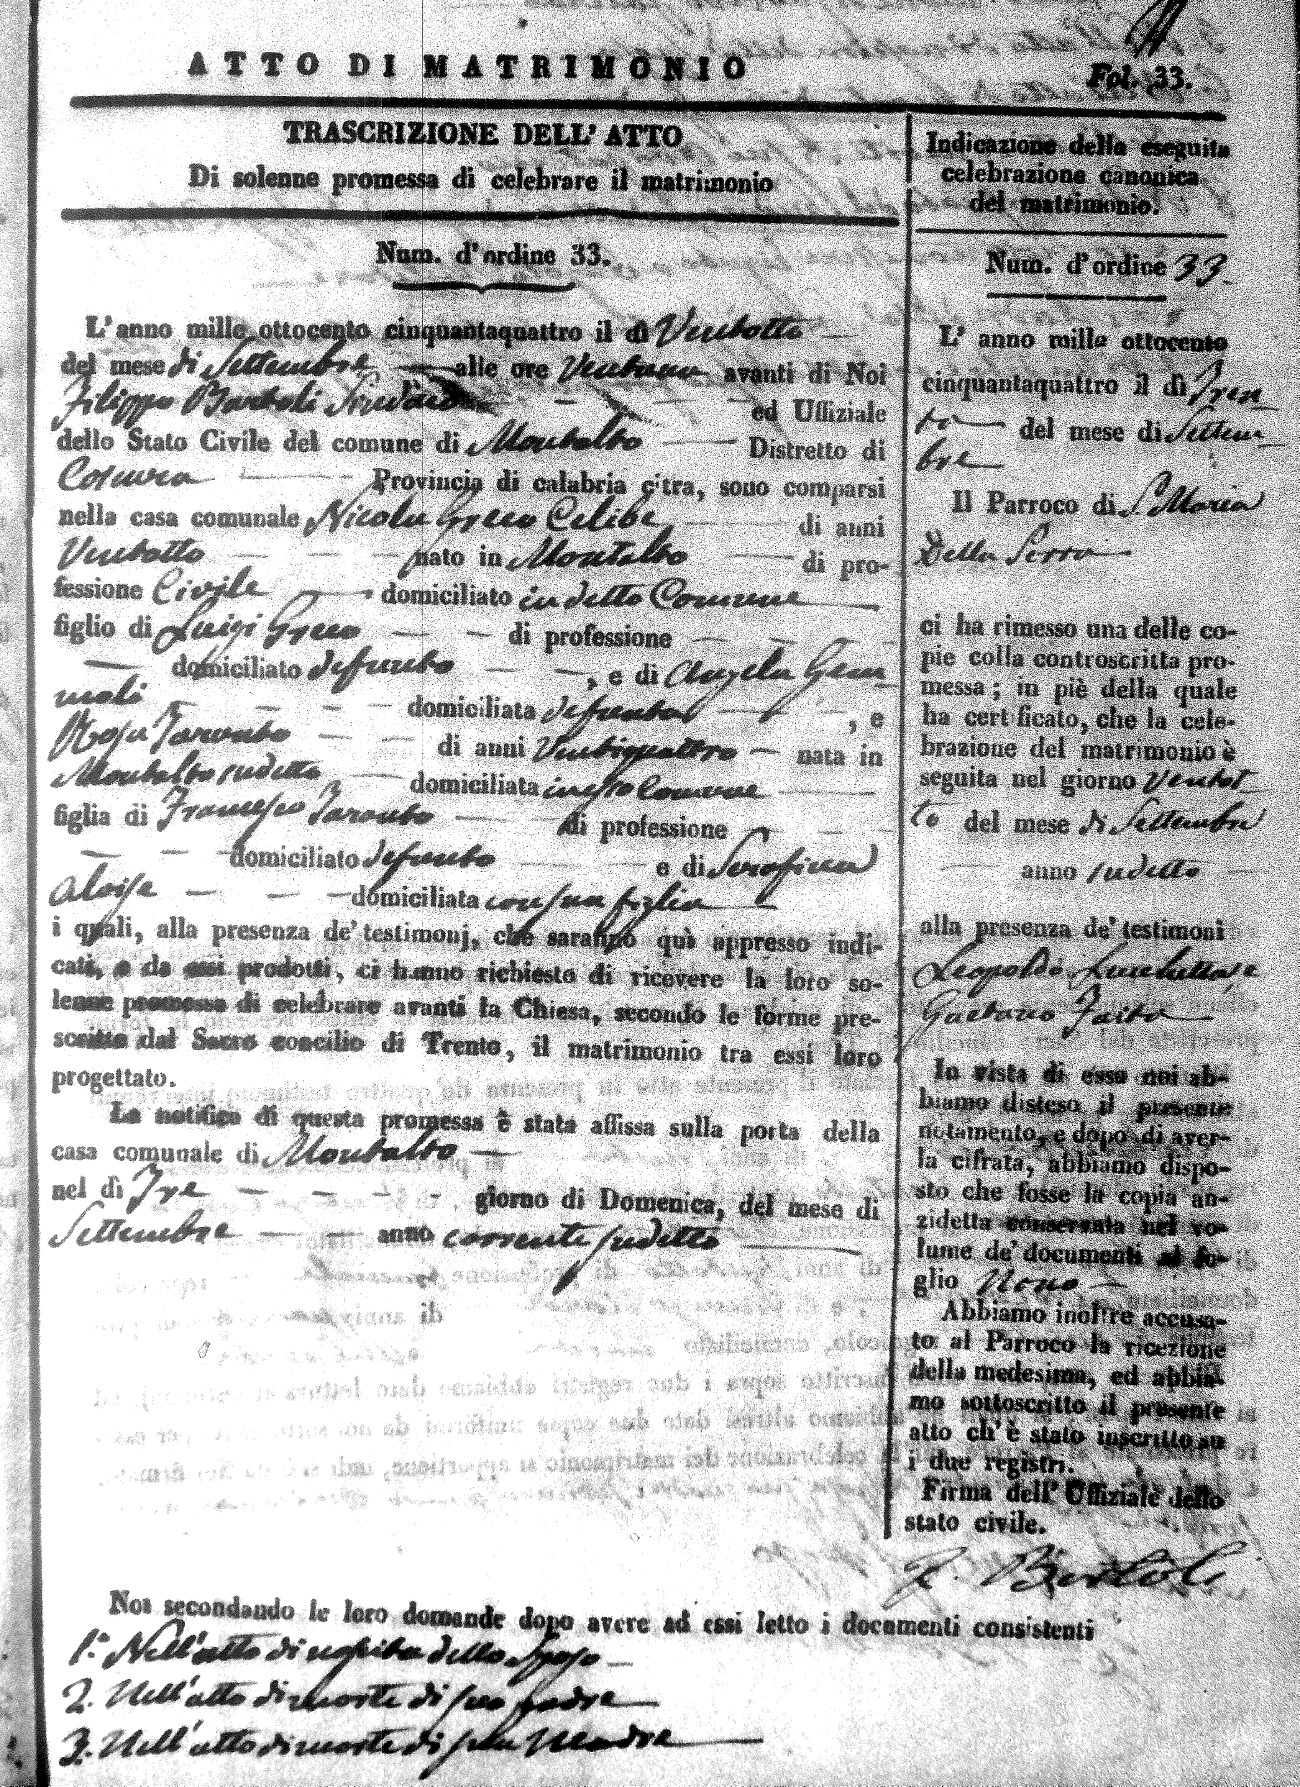 ATTO DI MATRIMONIO
Fol. 33.
TRASCRIZIONE DELL' ATTO
Di solenne promessa di celebrare il matrimonio
Num. d'ordine 33.
L'anno mille ottocento cinquantaquattro il dì Ventotto
del mese di Settembre alle ore Ventuna avanti di Noi
Filippo Bartoli Sindaco ed Uffiziale
dello Stato Civile del comune di Montalto Distretto di
Cosenza Provincia di calabria citra, sono comparsi
nella casa comunale Nicola Greco Celibe di anni
Ventotto nato in Montalto di pro-
fessione Civile domiciliato in detto Comune
figlio di Luigi Greco di professione
domiciliato defunto , e di Angela Gem
moli domiciliata defunta , e
Rosa Taranto di anni Ventiquattro nata in
Montalto sudetto domiciliata in esso Comune
figlia di Francesco Taranto di professione
domiciliato defunto e di Serafina
Aloise domiciliata con sua figlia
i quali, alla presenza de' testimonj, che saranno quì appresso indi-
cati, e da essi prodotti, ci hanno richiesto di ricevere la loro so-
lenne promessa di celebrare avanti la Chiesa, secondo le forme pre-
scritte dal Sacro concilio di Trento, il matrimonio tra essi loro
progettato.
La notifica di questa promessa è stata affissa sulla porta della
casa comunale di Montalto
nel dì Tre giorno di Domenica, del mese di
Settembre anno corrente sudetto
Indicazione della eseguita
celebrazione canonica
del matrimonio.
Num. d'ordine 33
L' anno mille ottocento
cinquantaquattro il dì Tren
ta del mese di Settem
bre
Il Parroco di S. Maria
Della Serra
ci ha rimesso una delle co-
pie colla controscritta pro-
messa; in piè della quale
ha certificato, che la cele-
brazione del matrimonio è
seguita nel giorno Ventot
to del mese di Settembre
anno sudetto
alla presenza de' testimoni
Leopoldo Lucchetta, e
Gaetano Faita
In vista di esso noi ab-
biamo disteso il presente
notamento, e dopo di aver-
la cifrata, abbiamo dispo-
sto che fosse la copia an-
zidetta conservata nel vo-
lume de' documenti al fo-
glio Nono
Abbiamo inoltre accusa-
to al Parroco la ricezione
della medesima, ed abbia-
mo sottoscritto il presente
atto ch'è stato inscritto su
i due registri.
Firma dell' Uffiziale dello
stato civile.
F. Bartoli
Noi secondando le loro domande dopo avere ad essi letto i documenti consistenti
1.° Nell'atto di nascita dello Sposo
2. Nell'atto di morte di suo padre
3. Nell'atto di morte di sua Madre